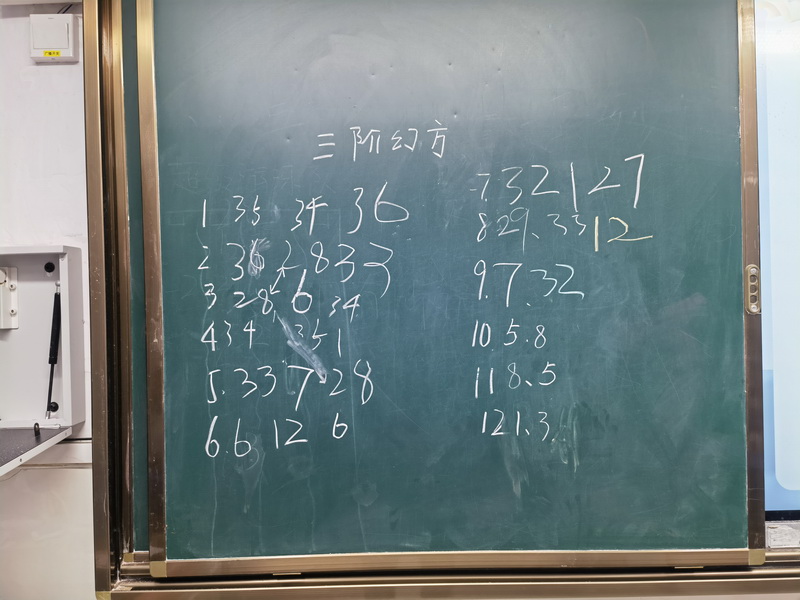 三阶幻方
1 35 34 36
2 36 28 33
3 28 6 34
4 34 35 1
5. 33 7 28
6. 6 12 6
7. 32 127
8 29、33 12
9. 7、32
10 5.8
11 8、5
12 1、3